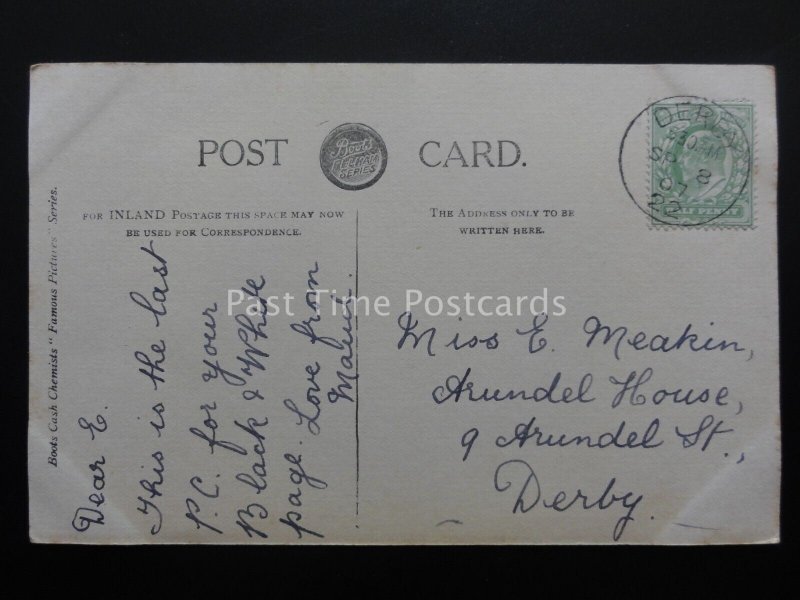 POST CARD.
Boots
SERIES
FOR INLAND POSTAGE THIS SPACE MAY NOW
BE USED FOR CORRESPONDENCE.
THE ADDRESS ONLY TO BE
WRITTEN HERE.
Boots Cash Chemists "Famous Pictures" Series.
Dear E.
This is the last
P.C. for your
Black & White
page. Love from
DERBY
SP 8
07
22
HALF PENNY
Miss E. Meakin,
Arundel House,
9 Arundel St.,
Derby.
Past Time Postcards